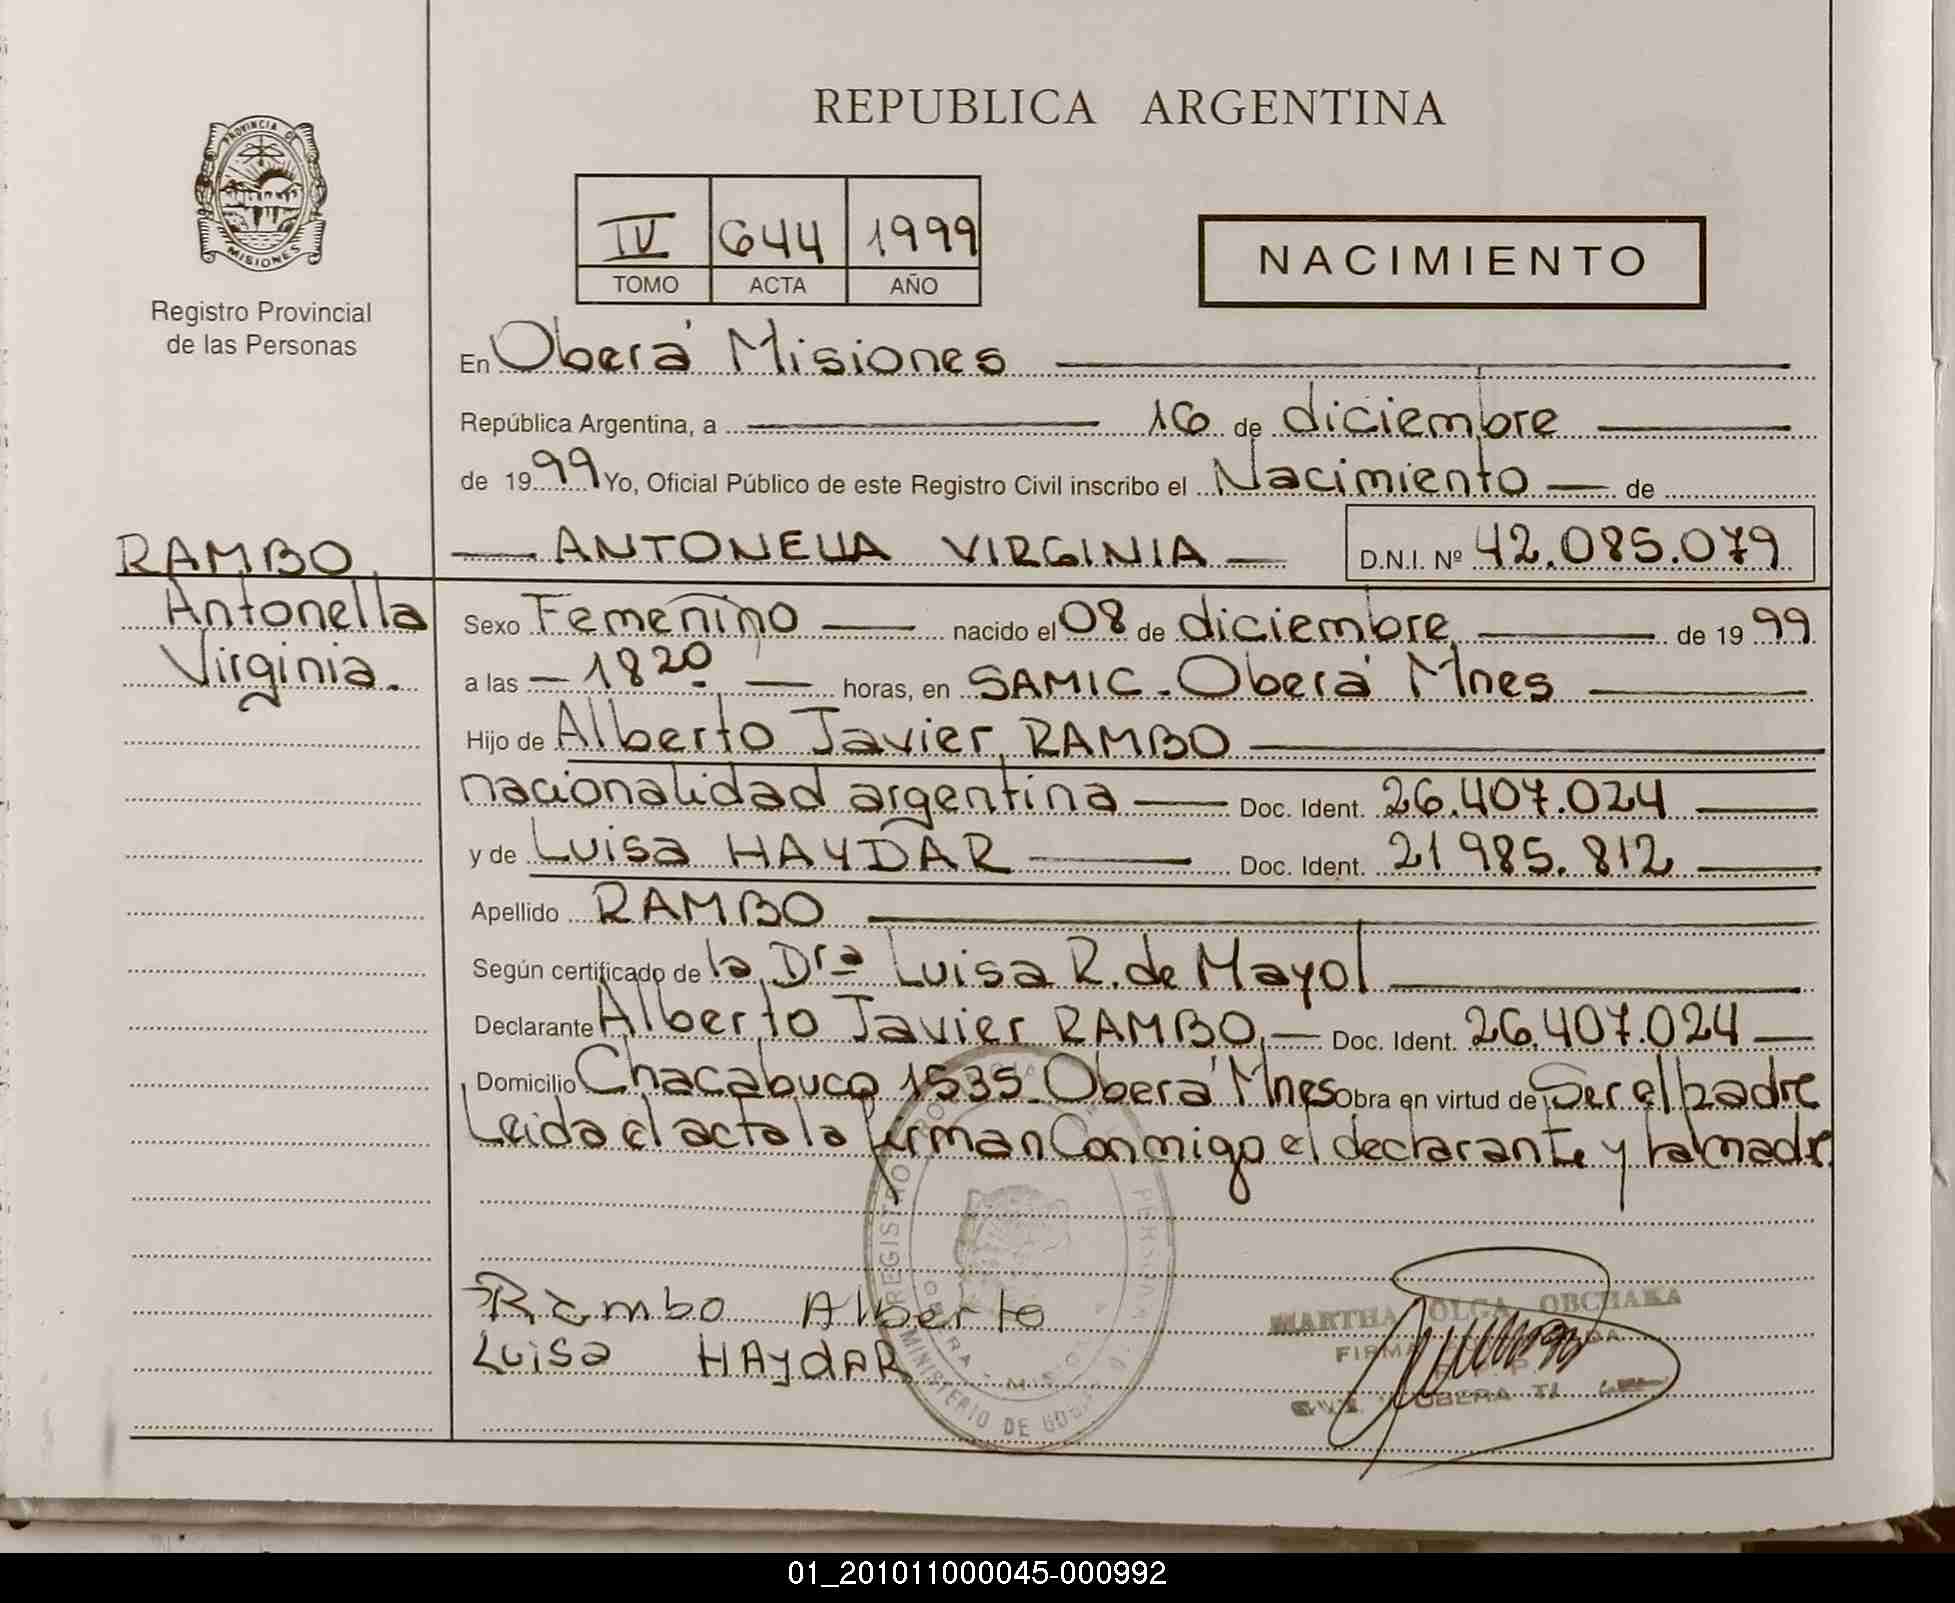 PROVINCIA DE
MISIONES
Registro Provincial
de las Personas
REPUBLICA ARGENTINA
IV 644 1999
TOMO ACTA AÑO
NACIMIENTO
En Oberá Misiones
República Argentina, a 16 de diciembre
de 1999 Yo, Oficial Público de este Registro Civil inscribo el Nacimiento de
RAMBO
Antonella
Virginia.
ANTONELLA VIRGINIA D.N.I. Nº 42.085.079
Sexo Femenino nacido el 08 de diciembre de 1999
a las 18 20 horas, en SAMIC - Oberá Mnes
Hijo de Alberto Javier RAMBO
nacionalidad argentina Doc. Ident. 26.407.024
y de Luisa HAYDAR Doc. Ident. 21 985.812
Apellido RAMBO
Según certificado de la Dra Luisa R. de Mayol
Declarante Alberto Javier RAMBO Doc. Ident. 26.407.024
Domicilio Chacabuco 1535 - Oberá Mnes Obra en virtud de Ser el padre
Leida el acta la firman Conmigo el declarante y la madre
Rambo Alberto
Luisa HAYdAR
REGISTRO
MINISTERIO DE
MARTHA OLGA OBCHAKA
OBERA
01_201011000045-000992